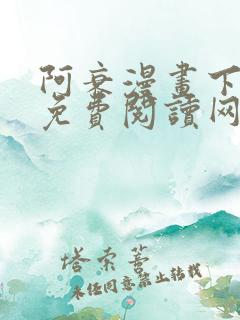 阿衰漫畫下
免費閱讀网
塔索菩
未经同意禁止转载